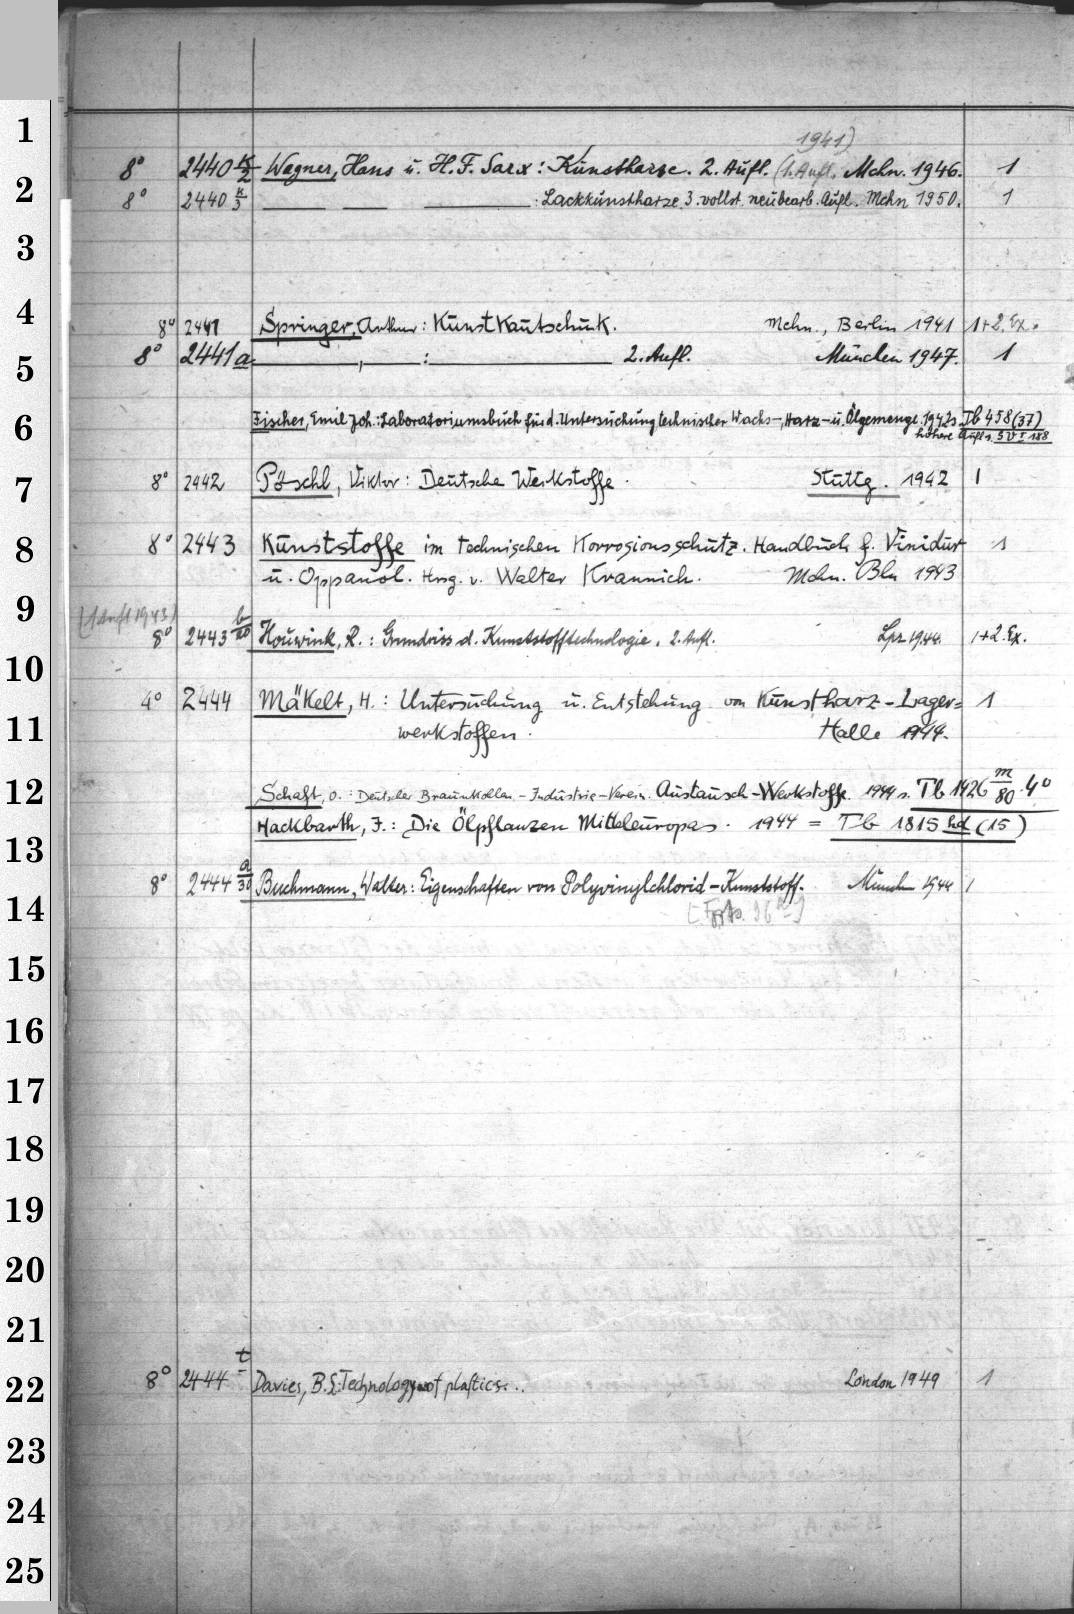 1941)
8° 2440 K/2 Wagner, Hans u. H. F. Sarx: Kunstharze. 2. Aufl. (1. Aufl. Mchn. 1946. 1
8° 2440 K/3 : Lackkunstharze 3. vollst. neubearb. Aufl. Mchn 1950. 1
8° 2441 Springer, Arthur: Kunstkautschuk. Mchn., Berlin 1941 1+2. Ex.
8° 2441a , : 2. Aufl. München 1947. 1
Fischer, Emil Joh.: Laboratoriumsbuch für d. Untersuchung technischer Wachs-, Harz- u. Ölgemenge. 1942 s. Tb 458 (37)
höhere Aufl. s.
8° 2442 Pöschl, Viktor: Deutsche Werkstoffe. Stuttg. 1942 1
8° 2443 Kunststoffe im technischen Korrosionsschutz. Handbuch f. Vinidur 1
u. Oppanol. Hrsg. v. Walter Krannich. Mchn. Bln 1943
(1. Aufl 1943)
8° 2443 b/20 Houwink, R.: Grundriss d. Kunststofftechnologie. 2. Aufl. Lpz. 1944. 1+2. Ex.
4° 2444 Mäkelt, H.: Untersuchung u. Entstehung von Kunstharz-Lager= 1
werkstoffen. Halle 1944.
Schaft, O.: Deutscher Braunkohlen-Industrie-Verein. Austausch-Werkstoffe. 1944 s. Tb 1426 m/80 4°
Hackbarth, J.: Die Ölpflanzen Mitteleuropas. 1944 = Tb 1815 hd (15)
8° 2444 a/30 Buchmann, Walter: Eigenschaften von Polyvinylchlorid-Kunststoff. München 1944 1
8° 2444 t Davies, B. L: Technology of plastics... London 1949 1
1
2
3
4
5
6
7
8
9
10
11
12
13
14
15
16
17
18
19
20
21
22
23
24
25